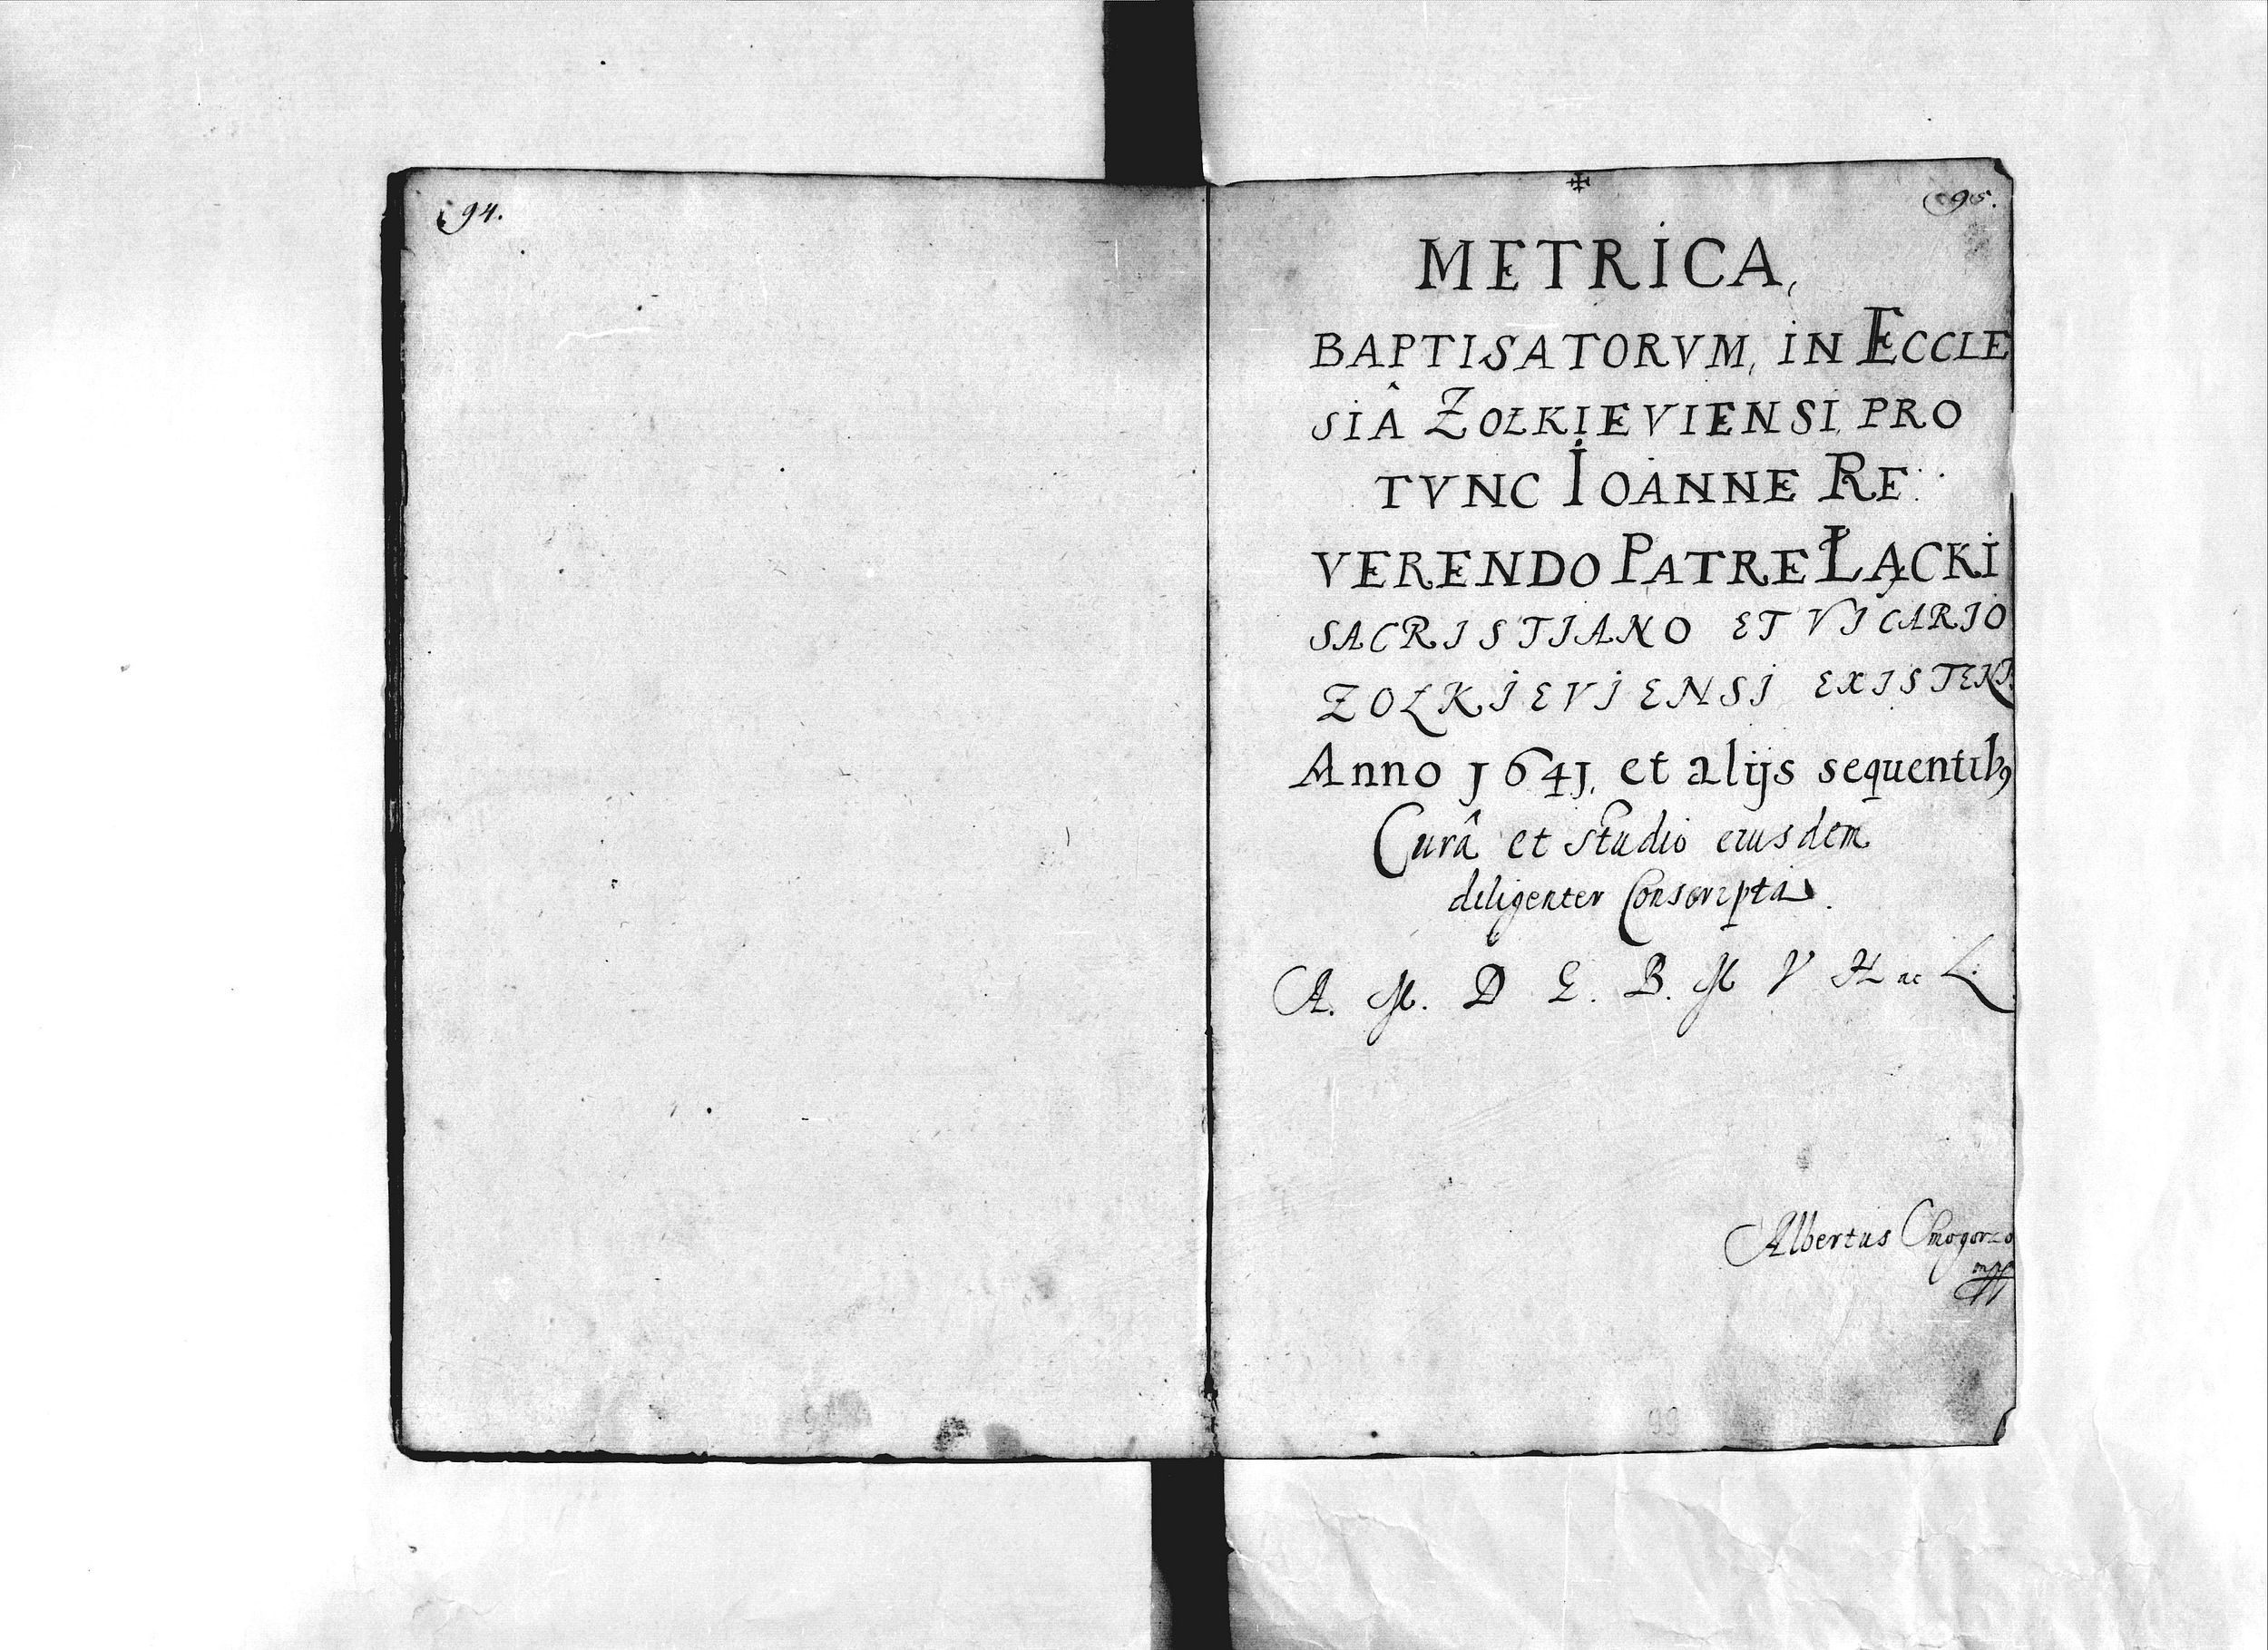 94.
95.
✠
METRICA,
BAPTISATORVM, IN ECCLE
SIÂ ZOŁKIEVIENSI, PRO
TVNC IOANNE RE:
VERENDO PATRE ŁĄCKI
SACRISTIANO ET VICARIO
ZOŁKIEVIENSI EXISTEN
Anno 1641, et alijs sequentib9
Curâ et studio eiusdem
diligenter Conscripta.
A. M. D. G. B. M V H ac L.
Albertus
mpp
99